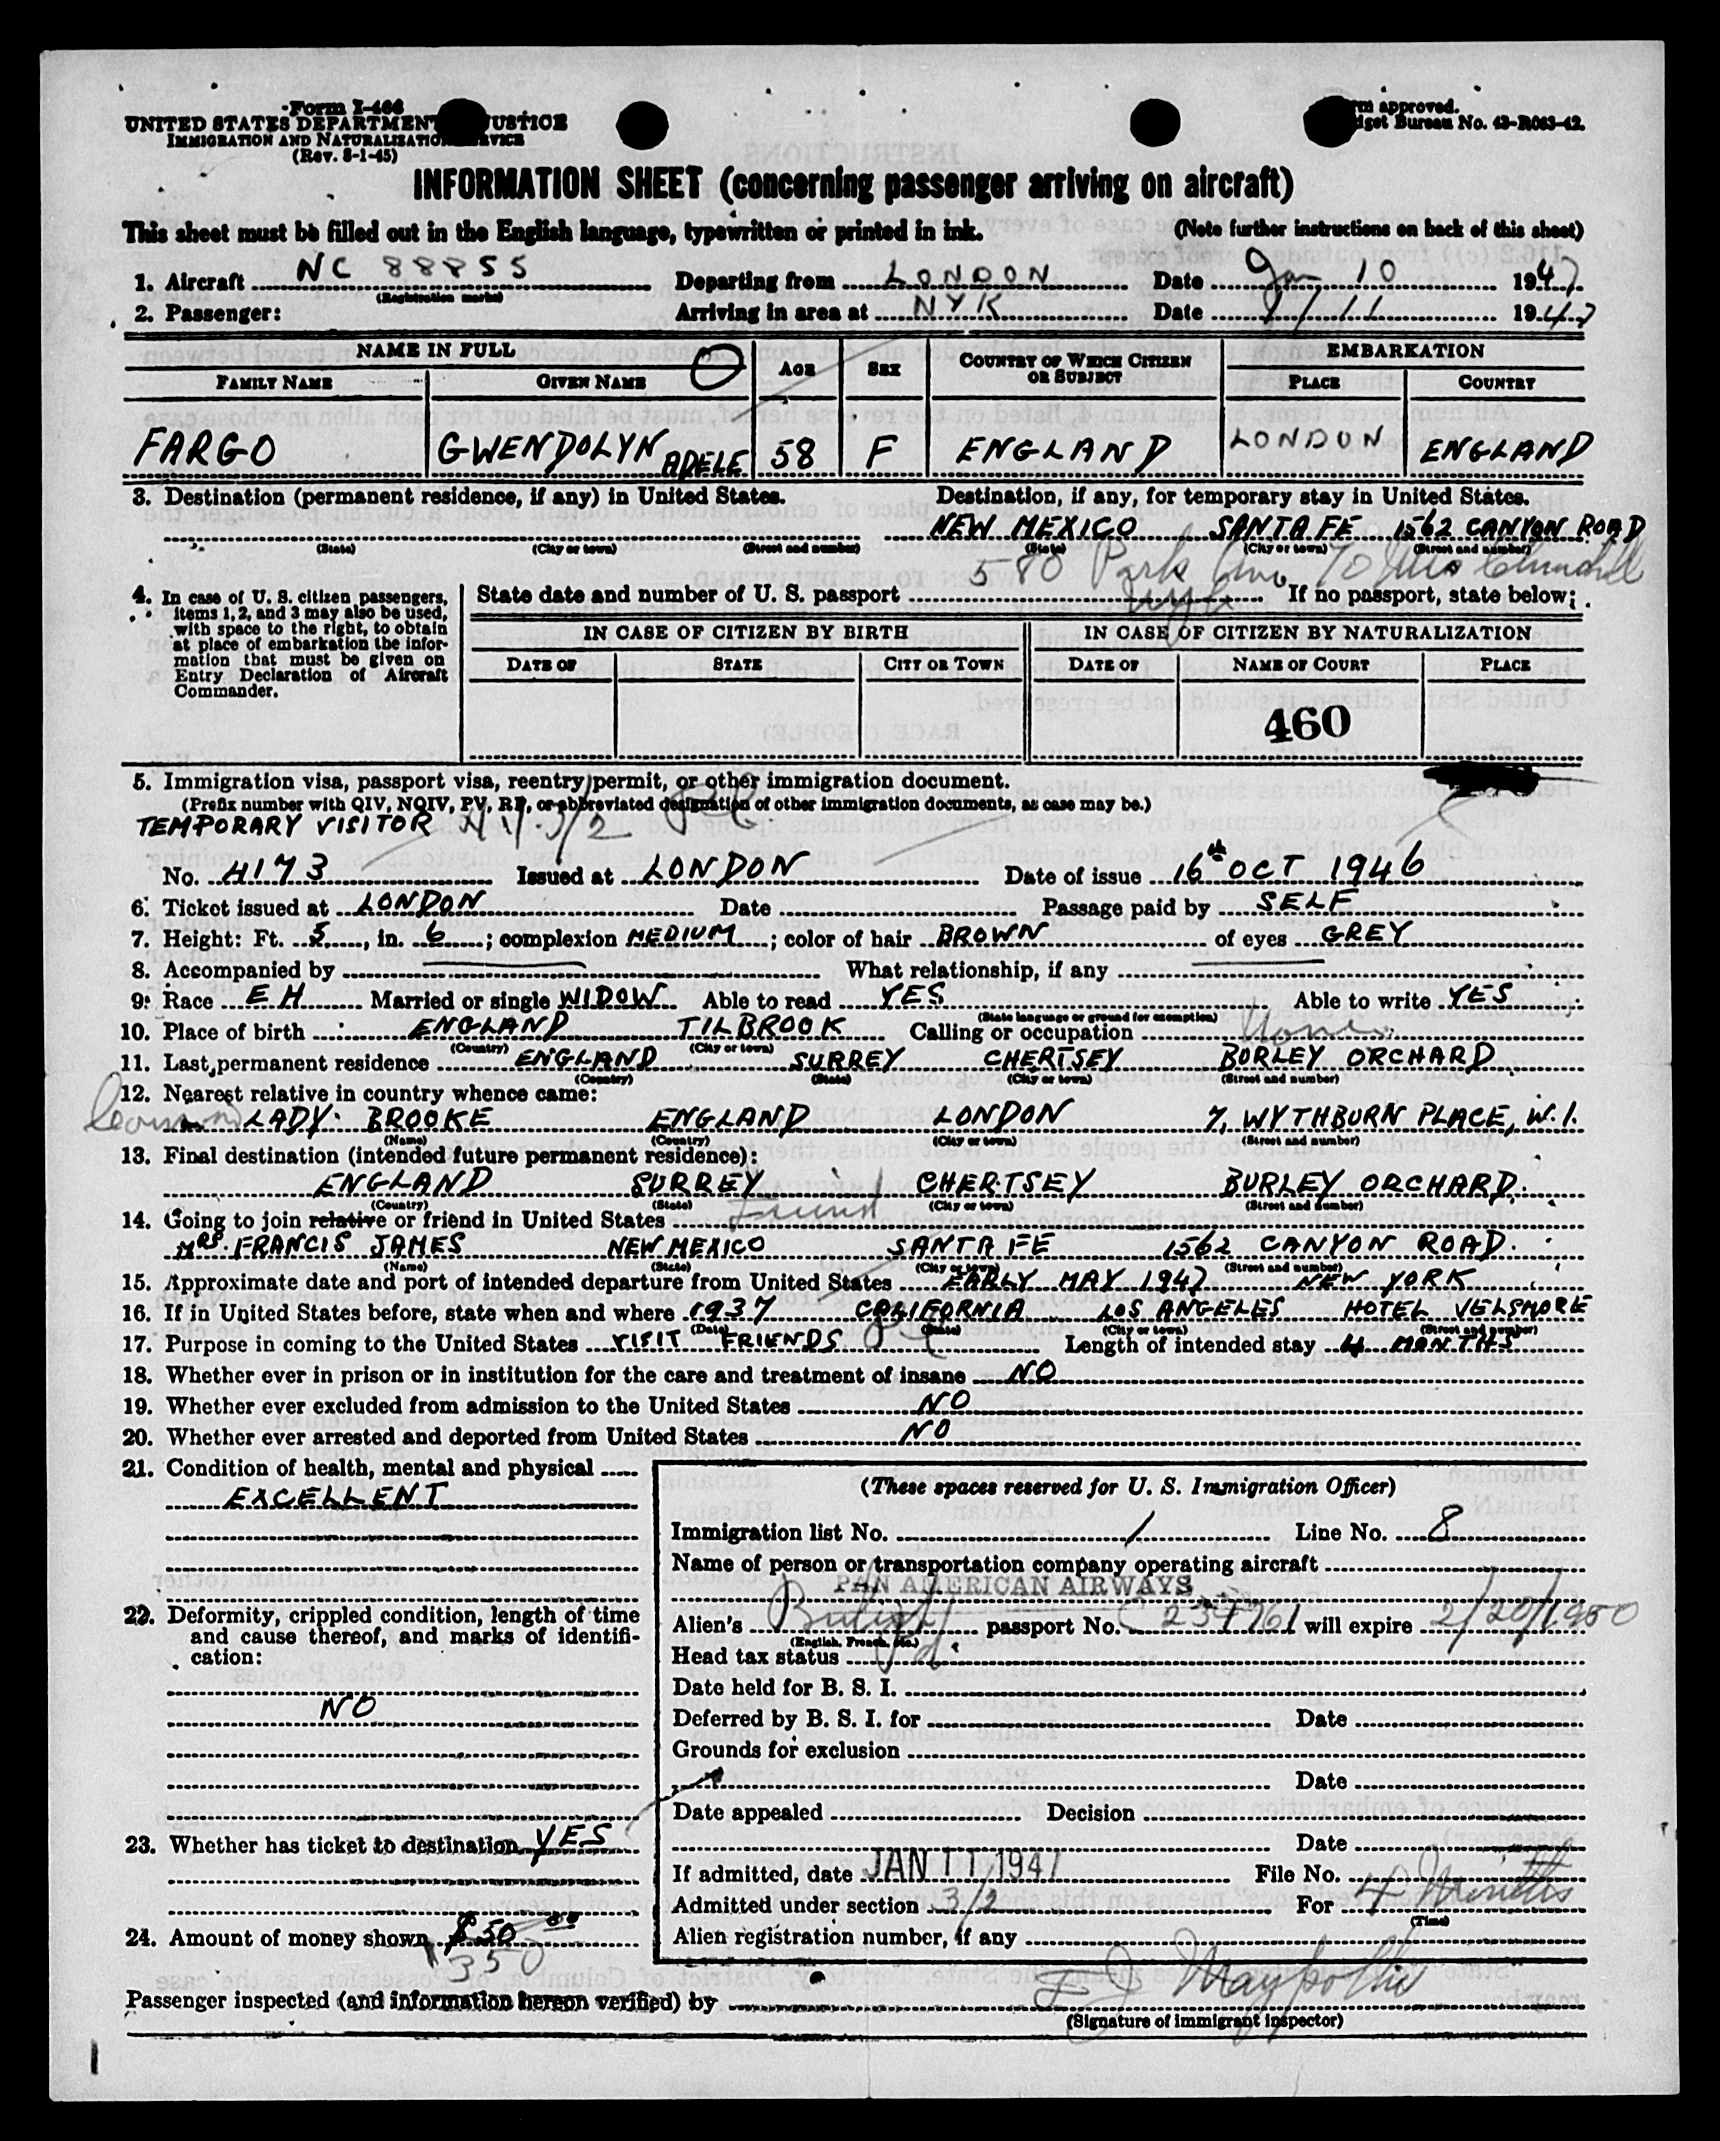 Form I-466
UNITED STATES DEPARTMENT JUSTICE
IMMIGRATION AND NATURALIZATION SERVICE
(Rev. 8-1-45)
approved.
Budget Bureau No. 43-R063-42.
INFORMATION SHEET (concerning passenger arriving on aircraft)
This sheet must be filled out in the English language, typewritten or printed in ink. (Note further instructions on back of this sheet)
1. Aircraft NC 88855 Departing from LONDON Date Jan 10 1947
(Registration marks)
2. Passenger: Arriving in area at NYK Date 1/11 1947
NAME IN FULL AGE SEX COUNTRY OF WHICH CITIZEN OR SUBJECT EMBARKATION
FAMILY NAME GIVEN NAME PLACE COUNTRY
FARGO GWENDOLYN ADELE 58 F ENGLAND LONDON ENGLAND
3. Destination (permanent residence, if any) in United States. Destination, if any, for temporary stay in United States.
NEW MEXICO SANTA FE 1562 CANYON ROAD
(State) (City or town) (Street and number) (State) (City or town) (Street and number)
580 Park Ave
4. In case of U. S. citizen passengers, items 1, 2, and 3 may also be used, with space to the right, to obtain at place of embarkation the information that must be given on Entry Declaration of Aircraft Commander.
State date and number of U. S. passport If no passport, state below:
IN CASE OF CITIZEN BY BIRTH IN CASE OF CITIZEN BY NATURALIZATION
DATE OF STATE CITY OR TOWN DATE OF NAME OF COURT PLACE
460
5. Immigration visa, passport visa, reentry permit, or other immigration document.
(Prefix number with QIV, NQIV, PV, RP, or abbreviated designation of other immigration documents, as case may be.)
TEMPORARY VISITOR 3/2
No. 4173 Issued at LONDON Date of issue 16th OCT 1946
6. Ticket issued at LONDON Date Passage paid by SELF
7. Height: Ft. 5, in. 6; complexion MEDIUM; color of hair BROWN of eyes GREY
8. Accompanied by What relationship, if any
9. Race EH Married or single WIDOW Able to read YES Able to write YES
(State language or ground for exemption)
10. Place of birth ENGLAND TILBROOK Calling or occupation None
(Country) (City or town)
11. Last permanent residence ENGLAND SURREY CHERTSEY BURLEY ORCHARD
(Country) (State) (City or town) (Street and number)
12. Nearest relative in country whence came:
cousin LADY BROOKE ENGLAND LONDON 7, WYTHBURN PLACE, W.1.
(Name) (Country) (City or town) (Street and number)
13. Final destination (intended future permanent residence):
ENGLAND SURREY CHERTSEY BURLEY ORCHARD.
(Country) (State) (City or town) (Street and number)
14. Going to join relative or friend in United States Friend
MRS. FRANCIS JAMES NEW MEXICO SANTA FE 1562 CANYON ROAD.
(Name) (State) (City or town) (Street and number)
15. Approximate date and port of intended departure from United States EARLY MAY 1947 NEW YORK
16. If in United States before, state when and where 1937 CALIFORNIA LOS ANGELES HOTEL VELSMORE
(Date) (State) (City or town) (Street and number)
17. Purpose in coming to the United States VISIT FRIENDS Length of intended stay 4 MONTHS
18. Whether ever in prison or in institution for the care and treatment of insane NO
19. Whether ever excluded from admission to the United States NO
20. Whether ever arrested and deported from United States NO
21. Condition of health, mental and physical
EXCELLENT
22. Deformity, crippled condition, length of time and cause thereof, and marks of identification:
NO
23. Whether has ticket to destination YES
24. Amount of money shown $50 00
350
(These spaces reserved for U. S. Immigration Officer)
Immigration list No. 1 Line No. 8
Name of person or transportation company operating aircraft
PAN AMERICAN AIRWAYS
Alien's British passport No. C 234761 will expire 2/20/1950
(English, French, etc.)
Head tax status
Date held for B. S. I.
Deferred by B. S. I. for Date
Grounds for exclusion
Date
Date appealed Decision
Date
If admitted, date JAN 11 1947 File No.
Admitted under section 3/2 For 4 Months
(Time)
Alien registration number, if any
Passenger inspected (and information hereon verified) by
(Signature of immigrant inspector)
1